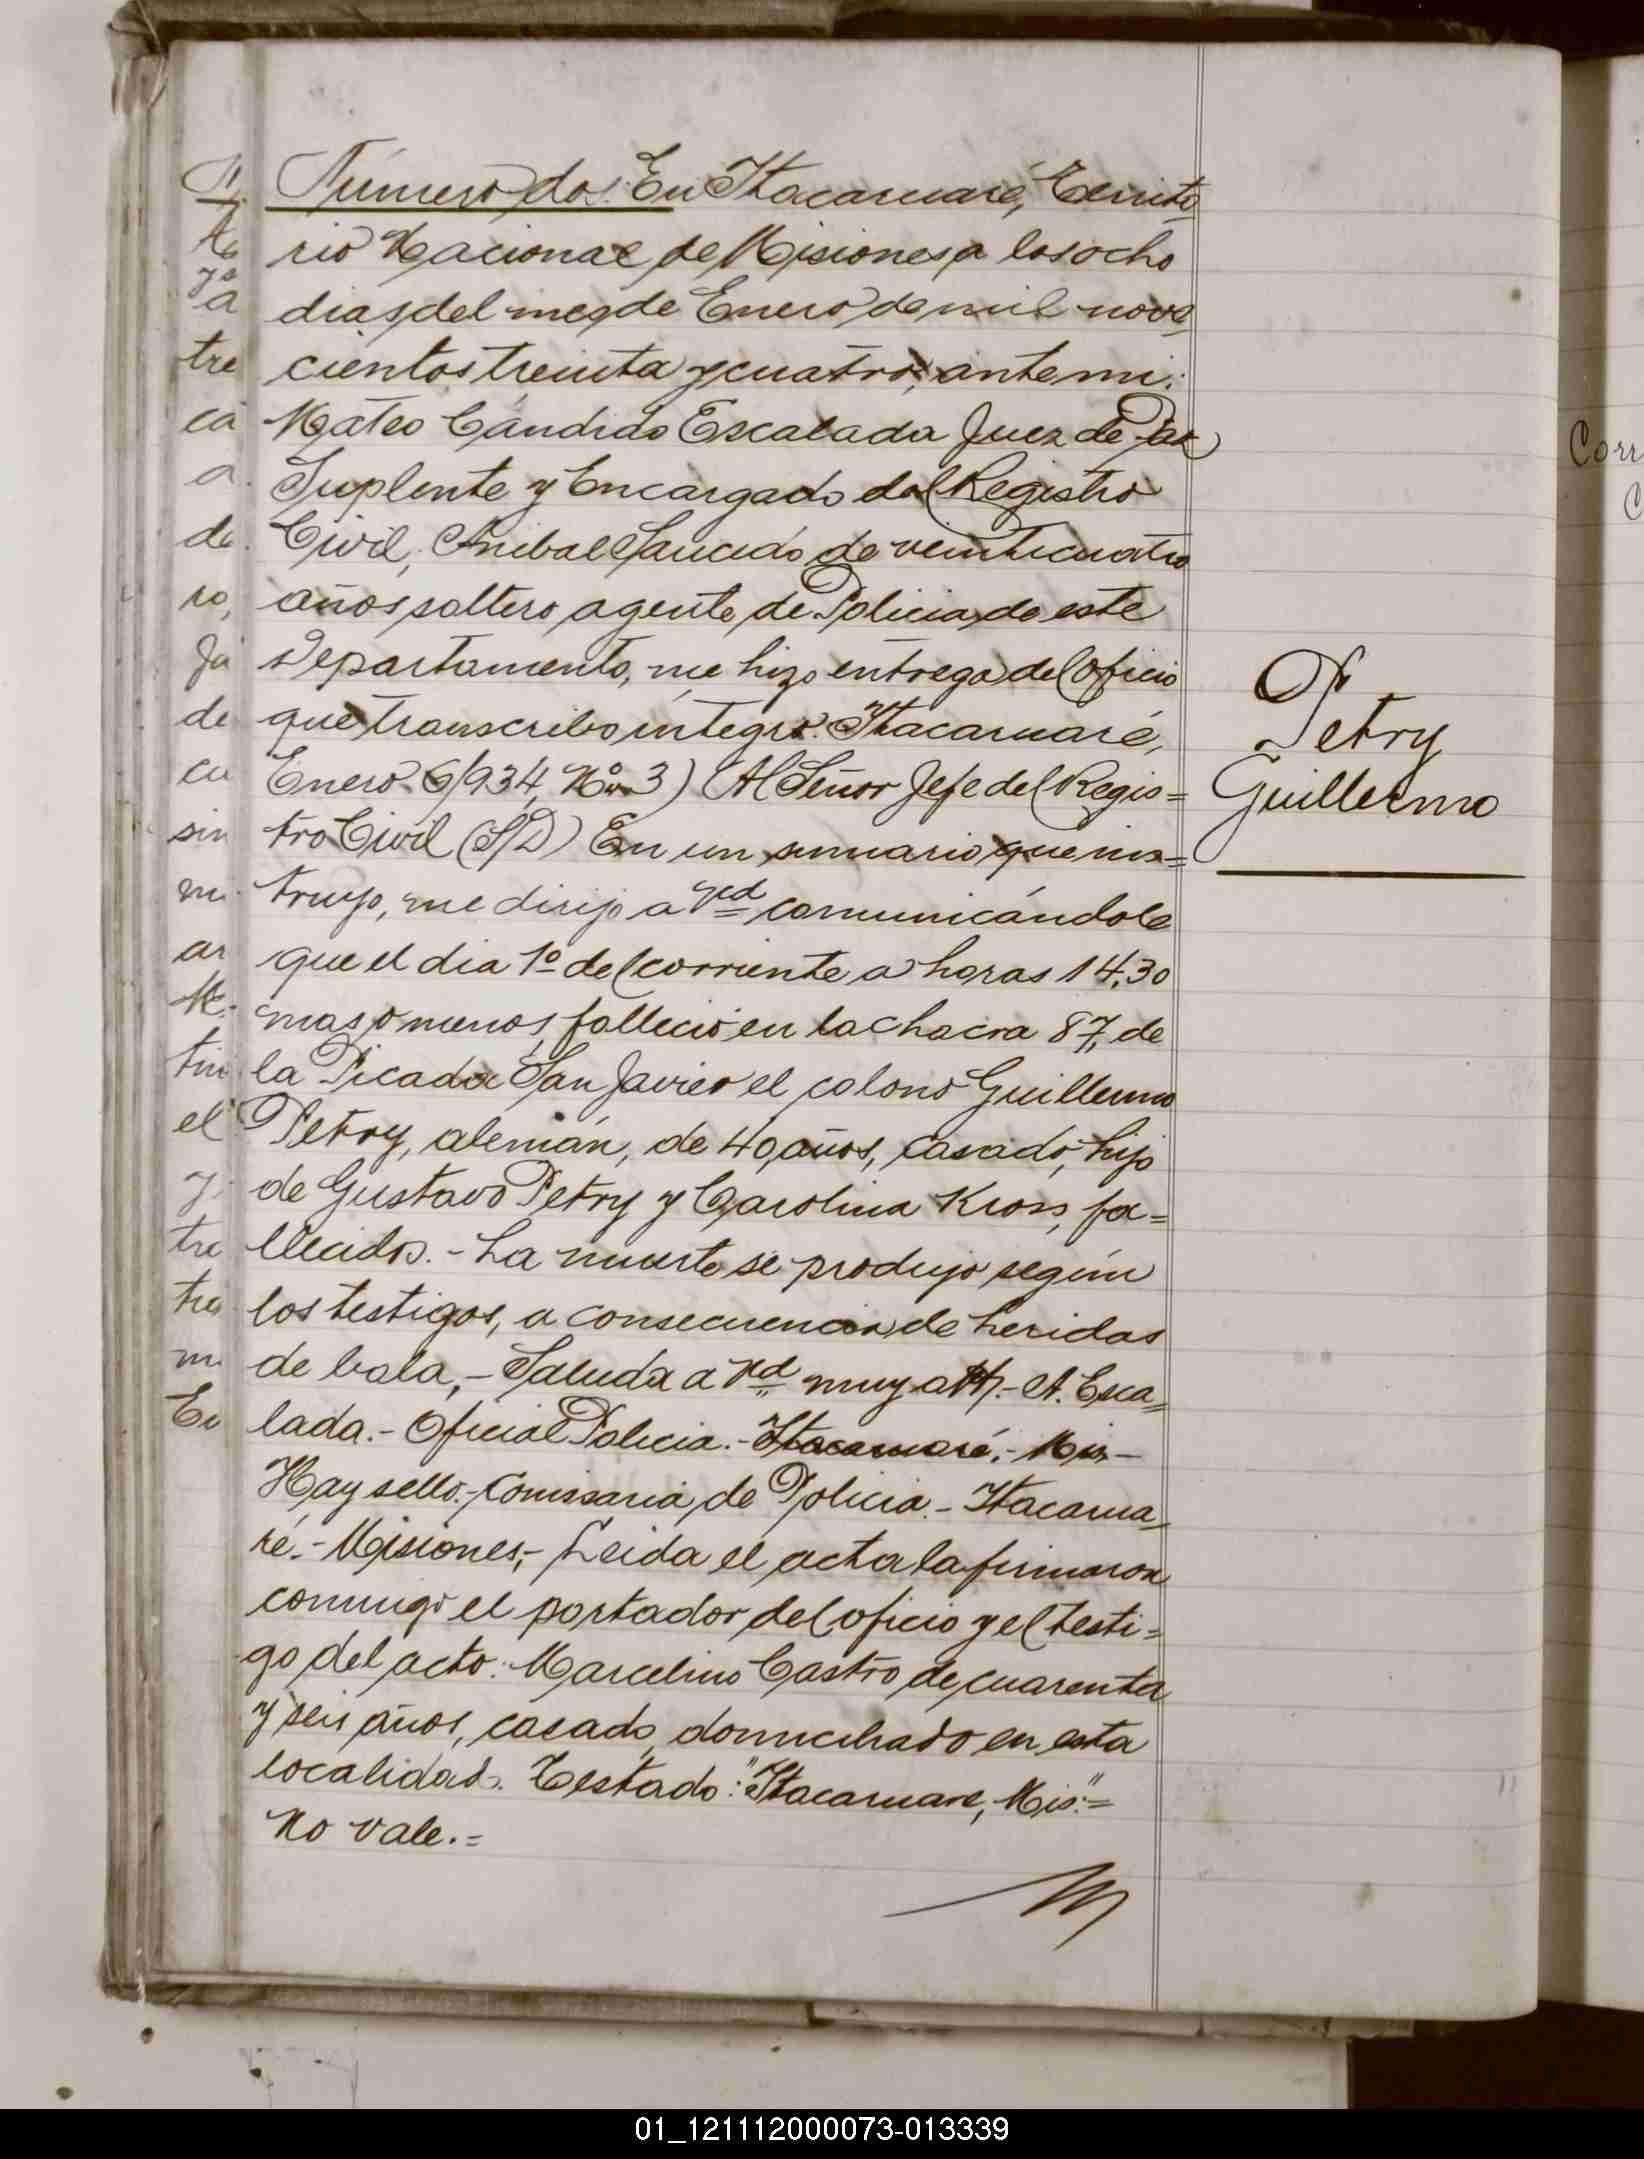 Número dos. En Itacaruaré, Territo
rio Nacional de Misiones a los ocho
dias del mes de Enero de mil nove
cientos treinta y cuatro, ante mi:
Mateo Cándido Escalada Juez de Paz
Suplente y Encargado del Registro
Civil, Anibal Saucedo de veinticuatro
años, soltero, agente de Policia de este
Departamento, me hizo entrega del oficio
que transcribo íntegro. Itacaruaré,
Enero 6/934, No 3) (Al Señor Jefe del Regis=
tro Civil (S/D) En un sumario que ins=
truyo, me dirijo a Ud comunicándole
que el dia 1º del corriente a horas 14,30
mas o menos, fallecio en la chacra 87, de
la Picada San Javier el colono Guillermo
Petry, alemán, de 40 años, casado, hijo
de Gustavo Petry y Carolina Kross, fa=
llecidos. - La muerte se produjo según
los testigos, a consecuencia de heridas
de bala, - Saluda a Ud muy att. - A. Esca=
lada. - Oficial Policia. - Itacaruaré, - Mis. -
Hay sello: - Comissaria de Policia. - Itacarua=
ré. - Misiones, - Leida el acta la firmaron
conmigo el portador del oficio y el testi=
go del acto: Marcelino Castro de cuarenta
y seis años, casado, domiciliado en esta
localidad. Testado: "Itacaruare, Mis:"=
No vale. =
Petry
Guillermo
N
a
tre
ca
a.
de
ro,
Ja
de
cu
sin
mi
ar
M
tin
el
y
tre
tra
mi
En
Corr
C
01_121112000073-013339